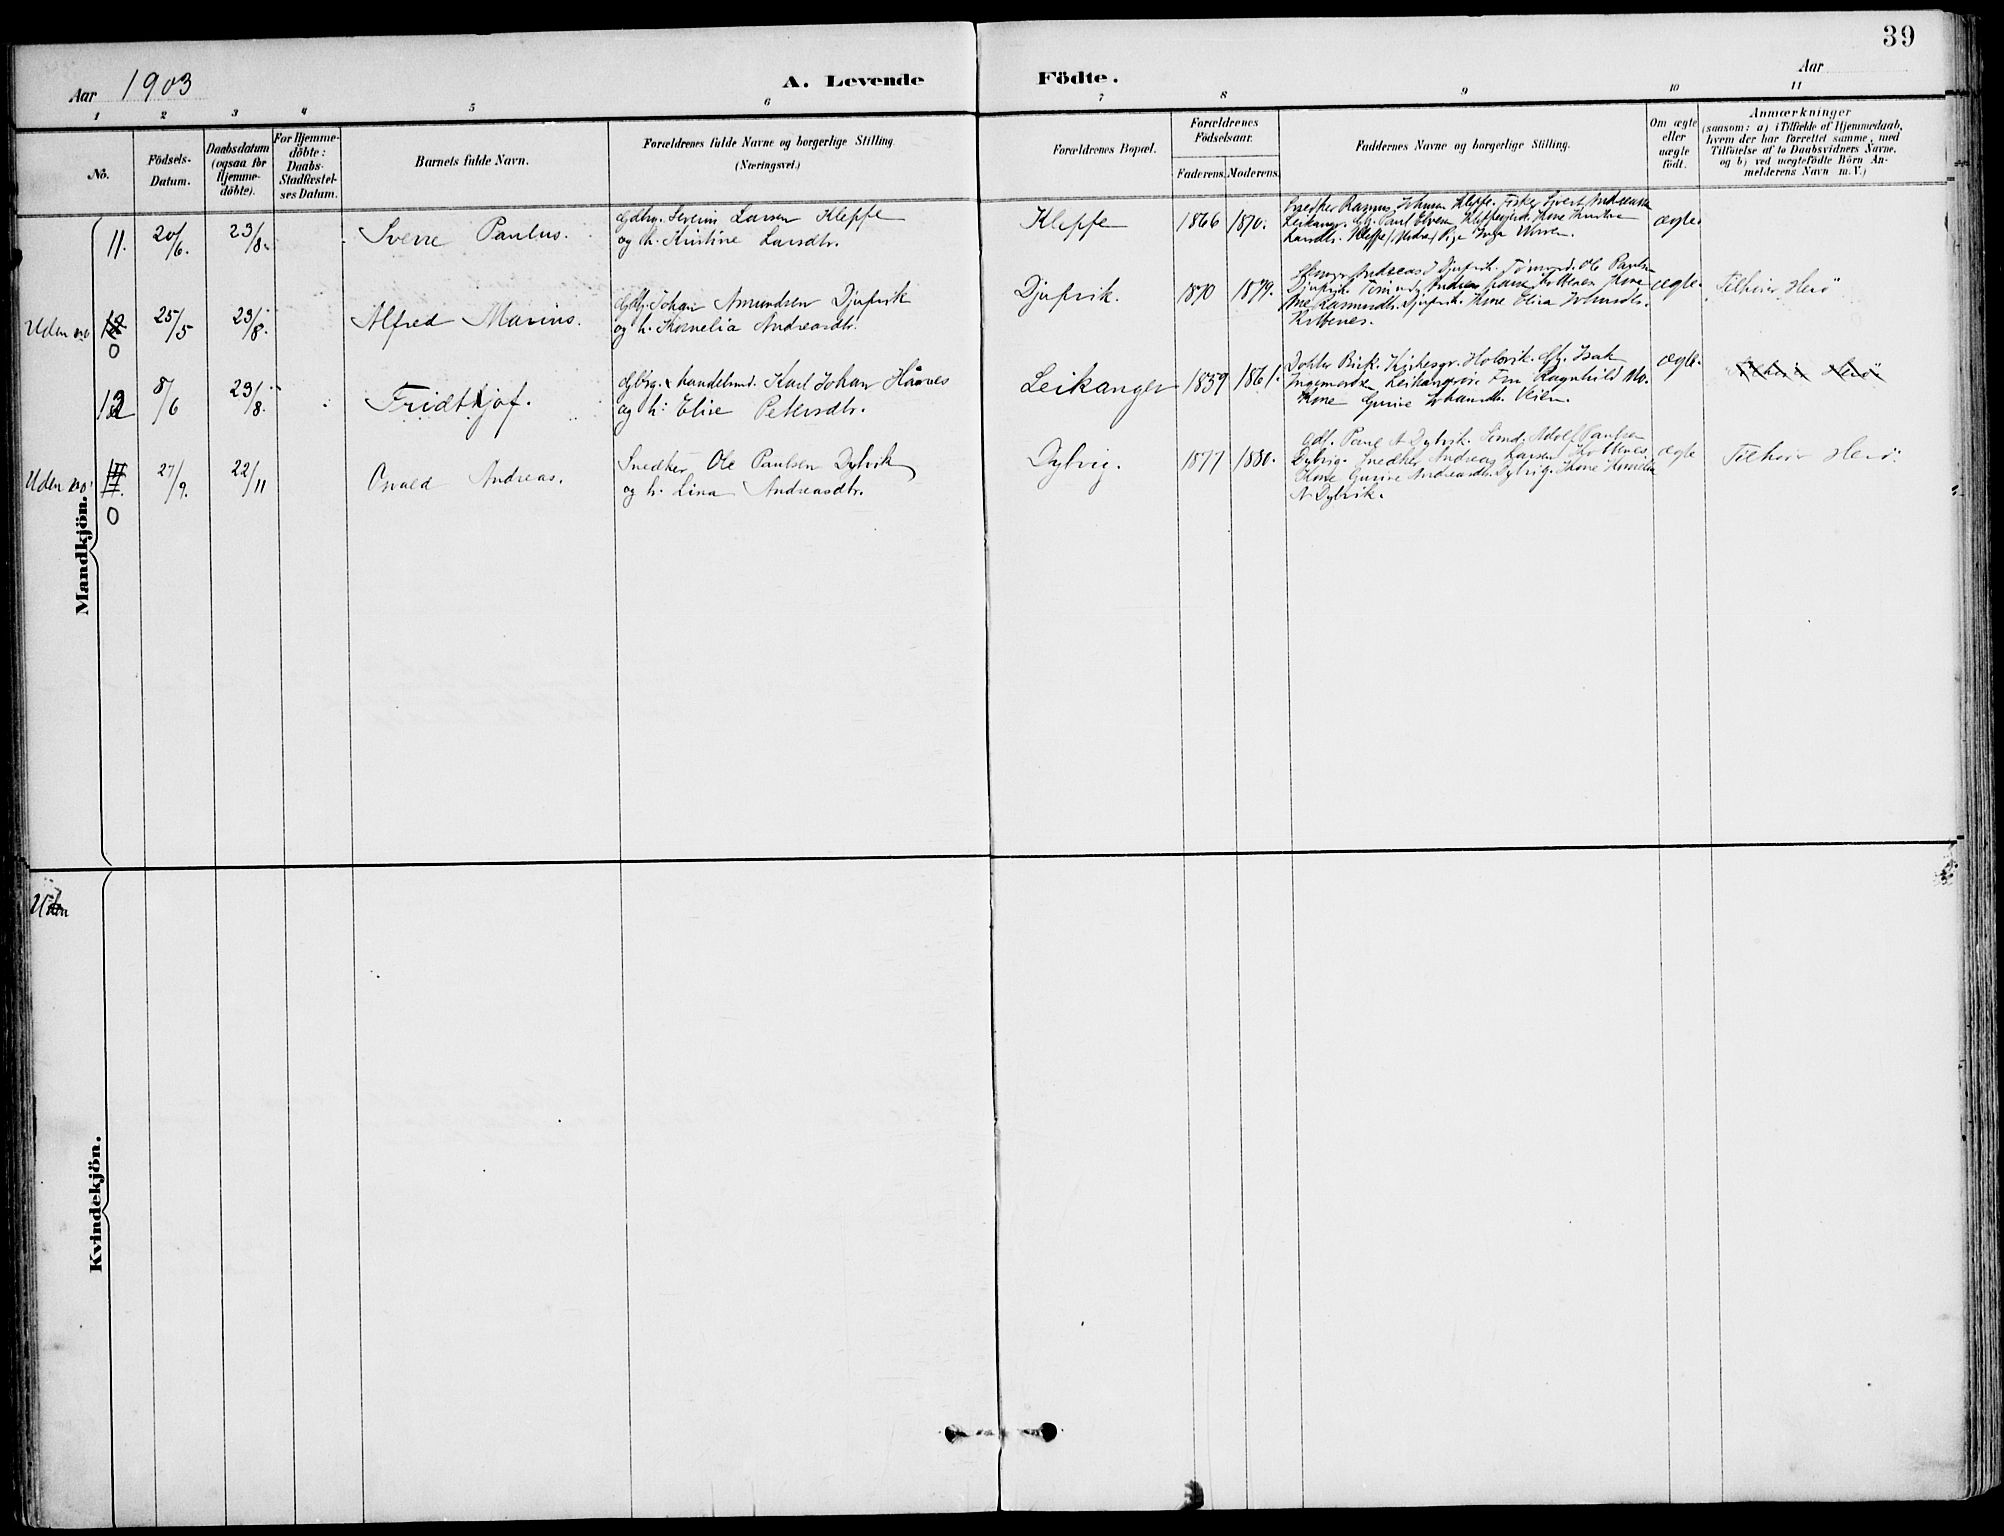 39
Aar 1903
A. Levende Födte.
Aar
1 2 3 4 5 6 7 8 9 10 11
No.
Födsels-
Datum.
Daabsdatum
(ogsaa for
Hjemme-
döbte).
For Hjemme-
döbte:
Daabs-
Stadfæstel-
ses Datum.
Barnets fulde Navn.
Forældrenes fulde Navne og borgerlige Stilling
(Næringsvei.)
Forældrenes Bopæl.
Forældrenes
Födselsaar.
Faderens. Moderens.
Faddernes Navne og borgerlige Stilling.
Om ægte
eller
uægte
födt.
Anmærkninger
(saasom: a) i Tilfælde af Hjemmedaab,
hvem der har forrettet samme, med
Tilföielse af to Daabsvidners Navne,
og b) ved uægtefödte Börn An-
melderens Navn m. V.)
Mandkjön.
11. 20/6. 23/8. Sverre Paulus.
Severin Larsen Kleppe
og h. Kristine Larsdtr.
Kleppe 1866 1870.
Snedker Rasmus Johnsen Kleppe. Fisker
Leikanger. Paul
Kleppe Pige Inga
ægte.
Uden no 12 0 25/5 23/8. Alfred Marius.
Johan Amundsen Djupvik
og h. Kornelia Andreasdtr.
Djupvik. 1870 1879.
Andreas Djupvik. Ole Paulsen
Djupvik. Andreas Kone
Ane Rasmusdtr. Djupvik. Kone Elisa Johnsdtr.
ægte.
Tilhører Herö
12 8/6 23/8. Fridthjof.
Gbrg. & handelsmd. Karl Johan Håvnes
og h: Elise Petersdtr.
Leikanger 1859 1861.
Dokter Kirkesgr. Holsvik. Isak
Ingemordsen Leikanger. Fru Ragnhild
Kone Gurine Johansdtr.
ægte.
Tilhører Herö
Uden no. 0 27/9. 22/11 Osvald Andreas.
Snedker Ole Paulsen Dylvik
og h. Lina Andreasdtr.
Dylvig. 1877 1880.
Paul A Dylvik. Adolf Paulsen
Dylvig. Snedker Andreas Larsen
Kone Gurine Andreasdtr. Dylvig. Kone
A Dylvik.
ægte
Tilhører Herö.
Uden
Kvindekjön.